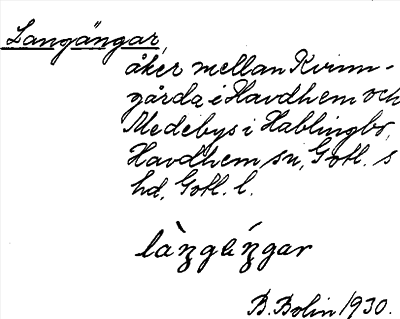 Langängar,
åker mellan Kvinn-
gårda i Havdhem och
Medebys i Hablingbo,
Havdhem sn, Gotl. s
hd, Gotl. l.
B. Bolin 1930.